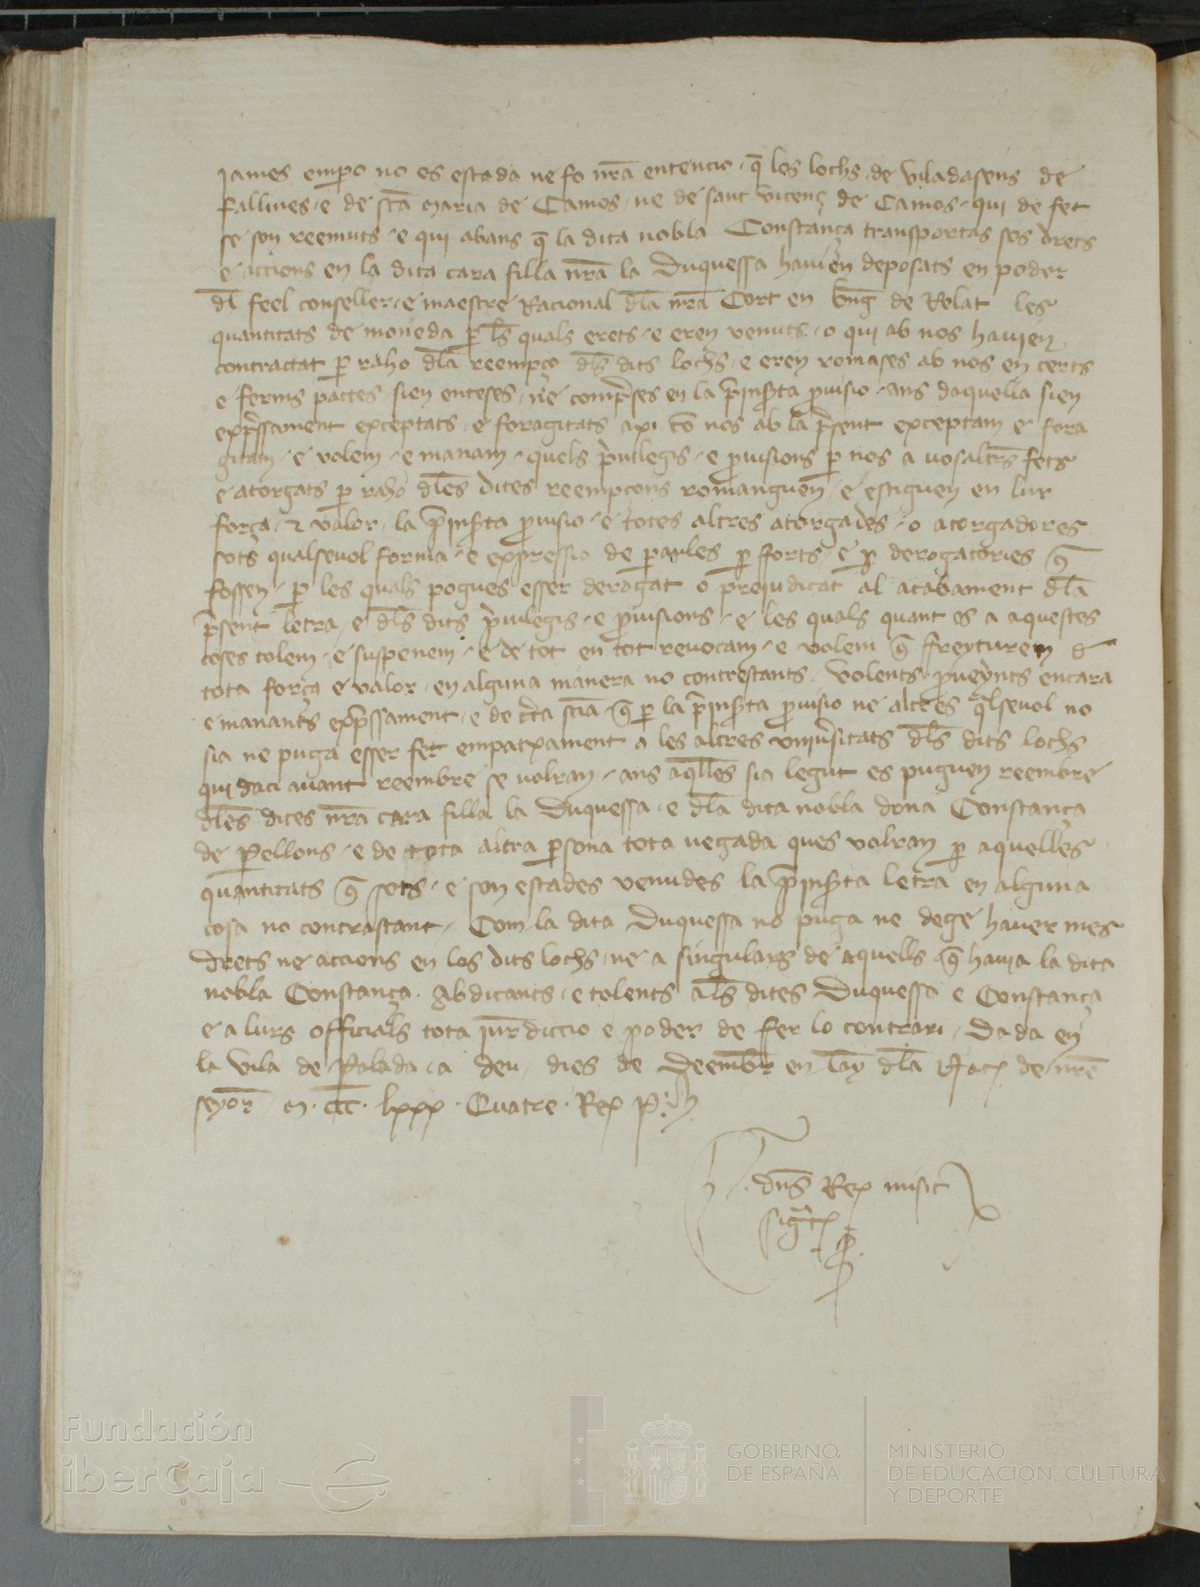 James empo no es estada ne fo nra entencio q les lochs de Viladasens de
Fallines e de sta Maria de Camos ne de sant Vicenç de Camos qui de fet
se son reemuts e qui abans q la dita nobla Constança transportas sos drets
e accions en la dita cara filla nra la Duquessa havien deposats en poder
dl feel conseller e maestre Racional dla nra Cort en bng de Relat les
quantitats de moneda p ls quals erets e eren venuts o qui ab nos havien
contractat p raho dla reempço dls dits lochs e eren romases ab nos en certs
e ferms pactes sien enteses ne compreses en la prinserta provisio ans daquella sien
expressament exceptats e foragitats axi co nos ab la present exceptam e fora
gitam e volem e manam quels privilegis e provisions p nos a vosaltrs fets
e atorgats p raho dles dites reempcons romanguen e estiguen en lur
força & valor la prinserta provisio e totes altres atorgades o atorgadores
sots qualsevol forma e expressio de paules p fforts e p derogatories q
fossen p les quals pogues esser derogat o prejudicat al acabament dla
present letra e dls dits privilegis e provisions e les quals quant es a aquestes
coses tolem e suspenem e de tot en tot revocam e volem q freyturen d
tota força e valor en alguna manera no contrestants Volents proveynts encara
e manants expressament e de certa scia q p la prinserta provisio ne altres qlsevol no
sia ne puga esser fet empatxament a les altres universitats dls dits lochs
qui daci avant reembre se volran ans aqlles sia legut es puguen reembre
dles dites nra cara filla la Duquessa e dla dita nobla dona Constança
de Pellons e de tota altra persona tota vegada ques volran p aquelles
quantitats q sots e son estades venudes la prinserta letra en alguna
cosa no contrastant Com la dita Duquessa no puga ne dege haver mes
drets ne accions en los dits lochs ne a singulars de aquells q havia la dita
nobla Constança Abdicants e tolents als dites Duquessa e Constança
e a lurs officials tota jurdiccio e poder de fer lo contrari Dada en
la Vila de Palada a deu dies de Deembr en lay dla Nat de nre
seyor M ccc lxxx Quatre Rex P
dns Rex misit
sigt
p
Fundación
iberCaja
GOBIERNO DE ESPAÑA
MINISTERIO DE EDUCACIÓN, CULTURA Y DEPORTE